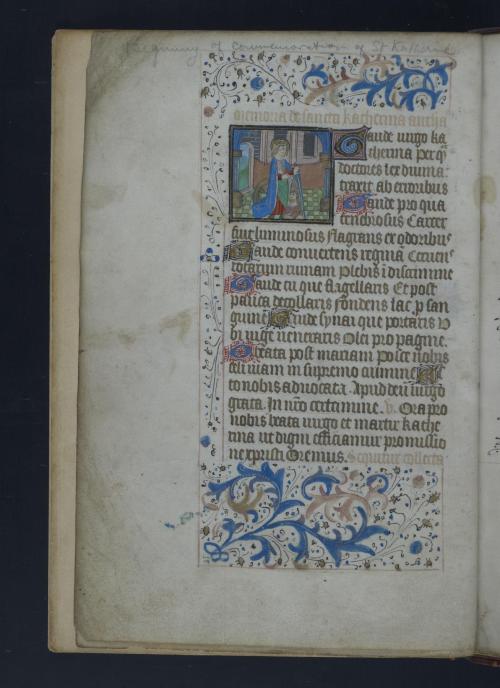 Beginning of Commemoration of St Katherine
memoria de sancta katherina antha
Gaude uirgo ka
therina per qua
doctores lex diuina
traxit ab erroribus
Gaude pro qua
tenebrosus Carcer
fuit luminosus flagrans et odoribus
Gaude conuertens regina
rotarum ruinam Plebis i discrimine
Gaude tu que flagellaris Et post
decollaris fondens lac p san
guine Gaude synai que portaris V
bi iuge ueneraris Olei pro pagine
Beata post mariam Posce nobis
celi uiam in supremo culmine
to nobis aduocata Apud deū uirgo
grata. In nro certamine. v. Ora pro
nobis beata uirgo et martir kathe
rina ut digni efficiamur promissio
ne xpristi Oremus. Sequitur collecta